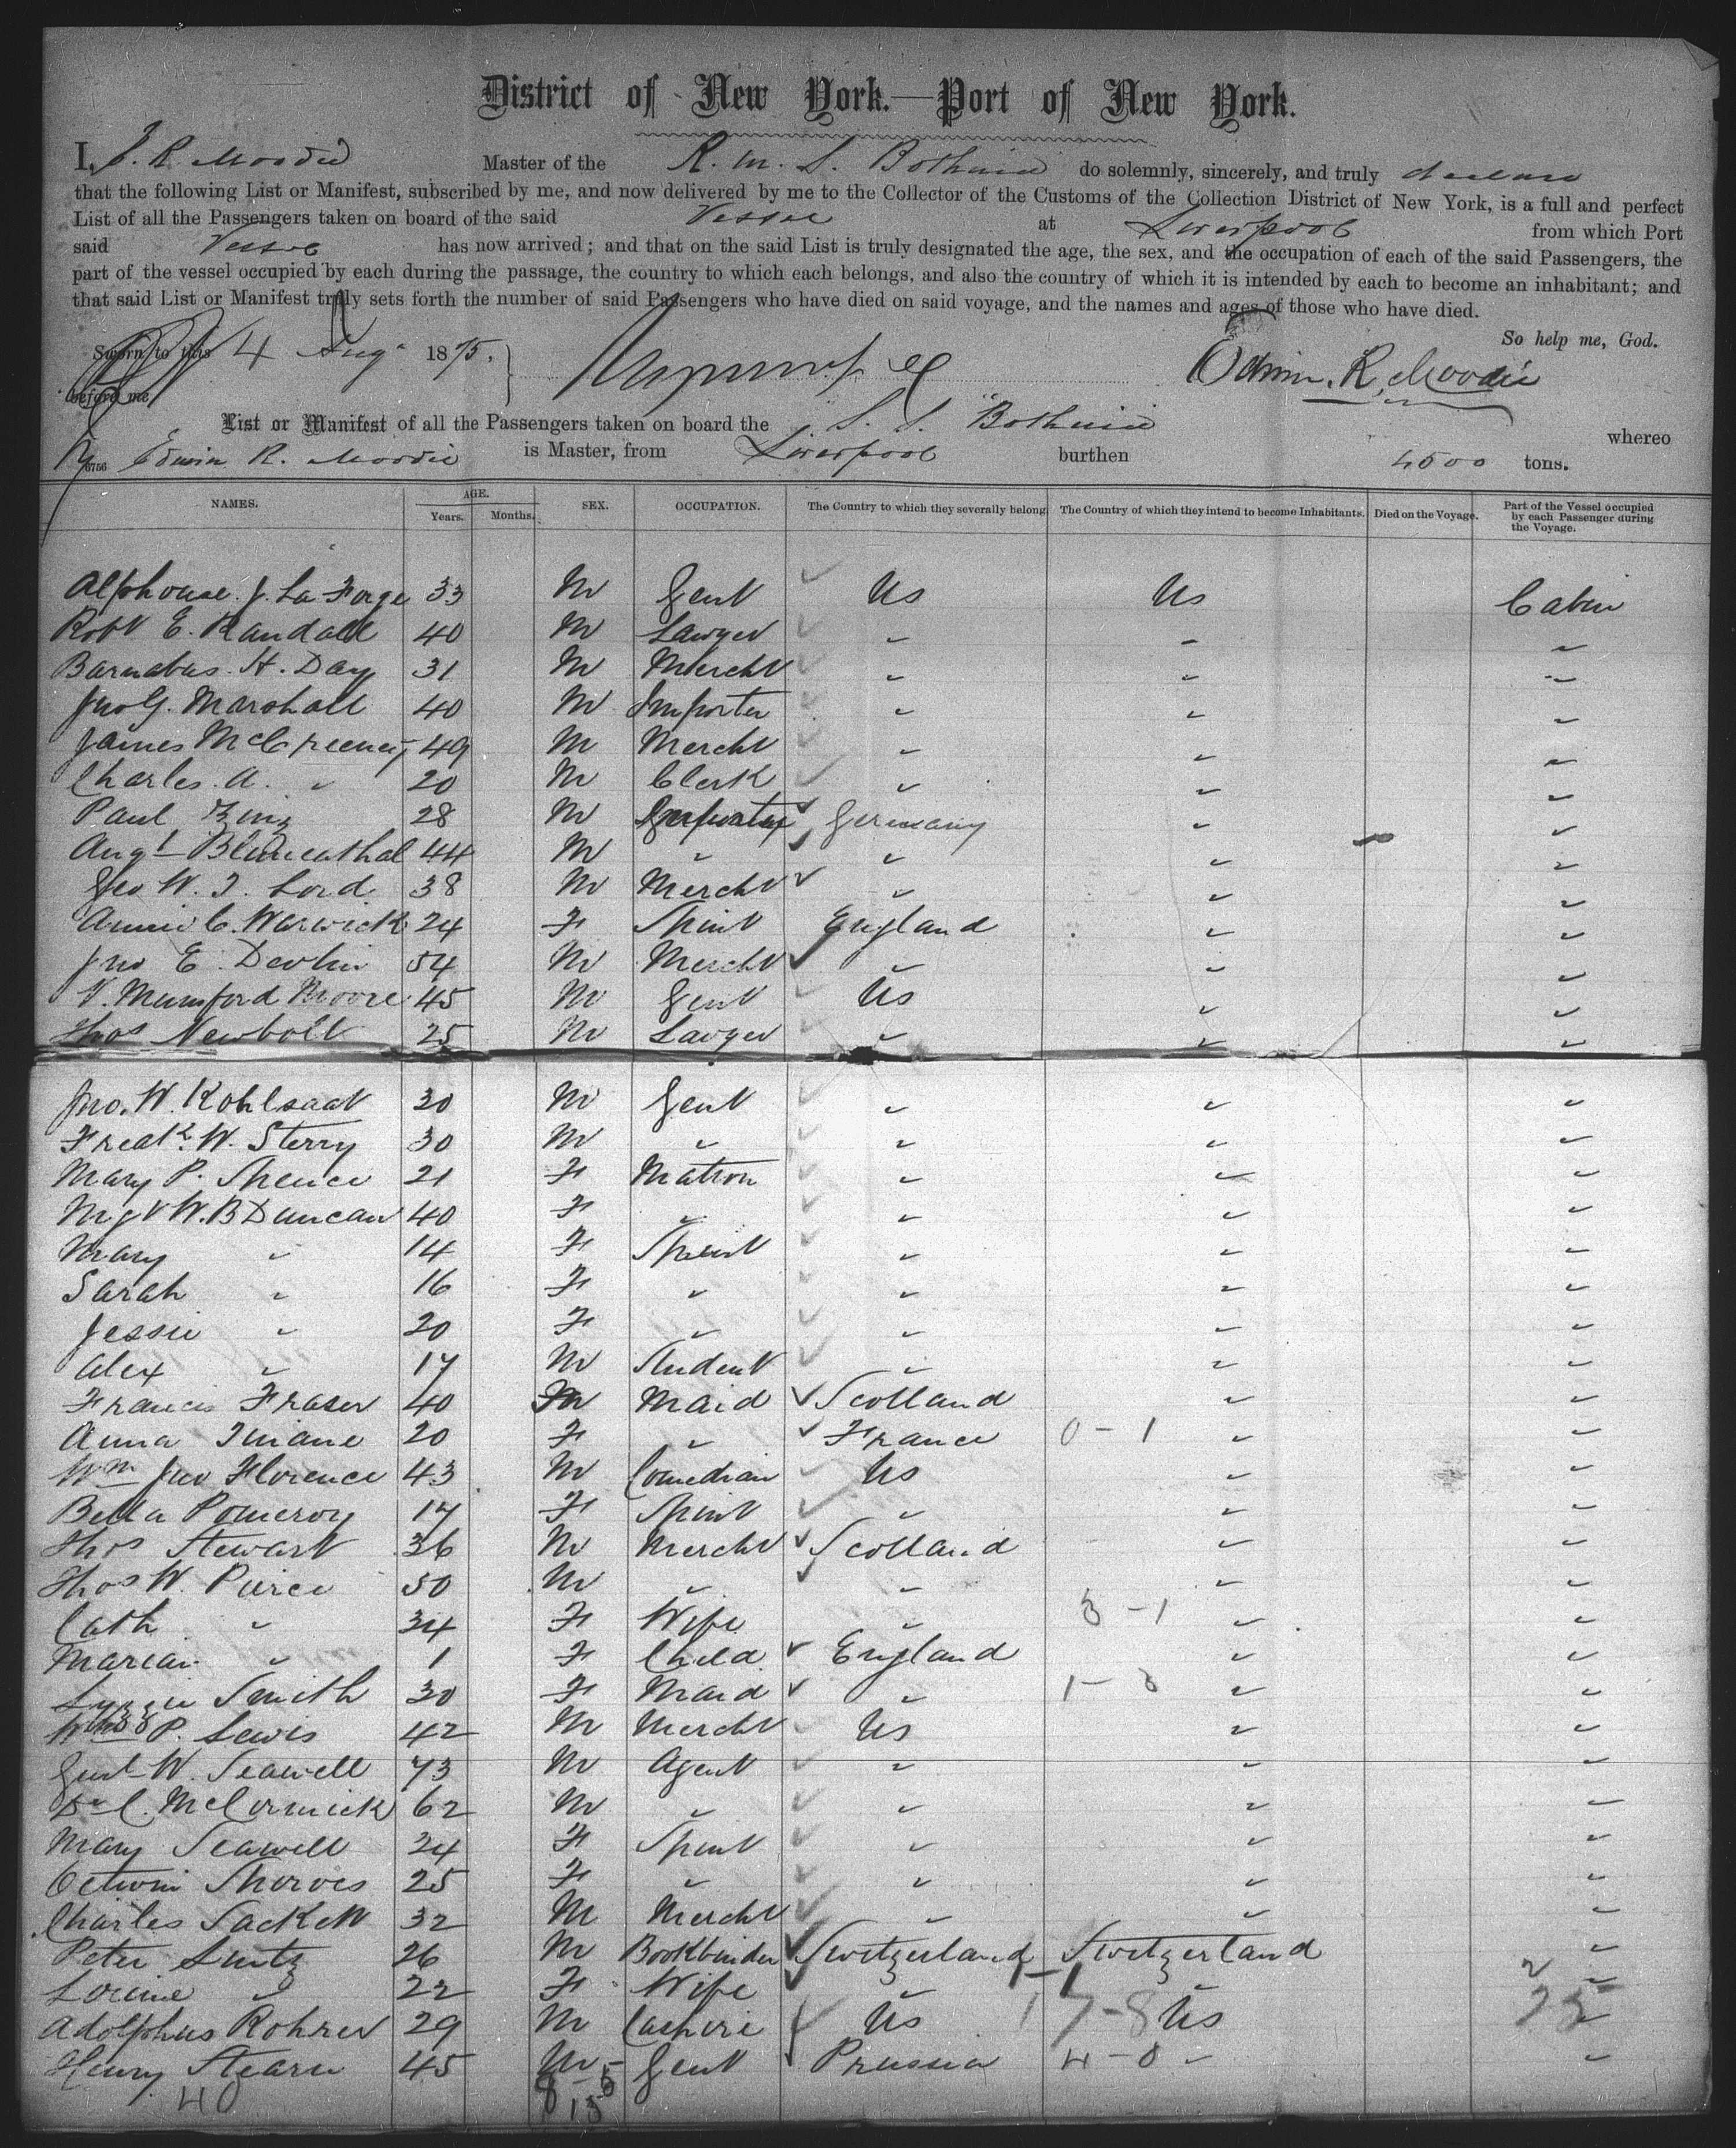 District of New York.—Port of New York.
I, E. R. Moodie Master of the R. M. S. Bothnia do solemnly, sincerely, and truly declare
that the following List or Manifest, subscribed by me, and now delivered by me to the Collector of the Customs of the Collection District of New York, is a full and perfect
List of all the Passengers taken on board of the said Vessel at Liverpool from which Port
said Vessel has now arrived; and that on the said List is truly designated the age, the sex, and the occupation of each of the said Passengers, the
part of the vessel occupied by each during the passage, the country to which each belongs, and also the country of which it is intended by each to become an inhabitant; and
that said List or Manifest truly sets forth the number of said Passengers who have died on said voyage, and the names and ages of those who have died.
So help me, God.
Sworn to this 4 Aug 1875. Edwin. R. Moodie
before me
List or Manifest of all the Passengers taken on board the S. S. Bothnia whereo
6756 Edwin R. Moodie is Master, from Liverpool burthen 4500 tons.
NAMES. AGE. Years. Months. SEX. OCCUPATION. The Country to which they severally belong. The Country of which they intend to become Inhabitants. Died on the Voyage. Part of the Vessel occupied by each Passenger during the Voyage.
Alphonse. J. La Forge 33 M Gent Us Us Cabin
Robt E. Randall 40 M Lawyer " " "
Barnabus. H. Day 31 M Mercht " " "
Jno G. Marshall 40 M Importer " " "
James McCreery 49 M Mercht " " "
Charles. A. " 20 M Clerk " " "
Paul 28 M Germany " "
Augt Blumenthal 44 M " " " "
Geo W. T. Lord 38 M Mercht " " "
Annie C. Warwick 24 F Spint England " "
Jno E. Devlin 54 M Mercht " " "
V. Mumford Moore 45 M Gent Us " "
Thos Newbolt 25 M Lawyer " " "
Jno. W. Kohlsaat 30 M Gent " " "
Fredk. W. Sterry 30 M " " " "
Mary P. Spence 21 F Matron " " "
Mgt W. B Duncan 40 F " " " "
Mary " 14 F Spint " " "
Sarah " 16 F " " " "
Jessie " 20 F " " " "
Alex " 17 M Student " " "
Francis Fraser 40 Maid Scotland " "
Anna 20 F " France 0-1 " "
Wm Jno Florence 43 M Comedian Us " "
Bella Pomeroy 17 F Spint " " "
Thos Stewart 36 M Mercht Scotland " "
Thos W. Pierce 50 M " " " "
Cath " 34 F Wife " 3-1 " "
Marian " 1 F Child England " "
Lyzzie Smith 30 F Maid " 1-0 " "
P. Lewis 42 M Mercht Us " "
Genl W. Seawell 73 M Agent " " "
Dr C. McCormick 62 M " " " "
Mary Seawell 24 F Spint " " "
25 F " " " "
Charles Sackett 32 M Mercht " " "
Peter Lentz 26 M Bookbinder Switzerland Switzerland "
Louise " 22 F Wife " 1-1 " "
Adolphus Rohrer 29 M Us 17-8 Us "
Henry Stearn 45 M Gent Prussia 4-0 " "
40